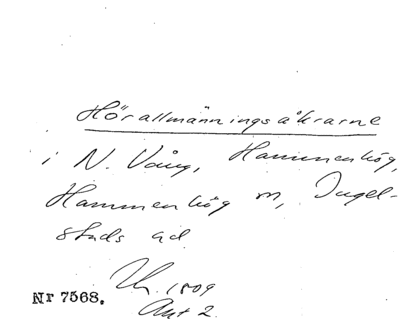 Hörallmänningsåkrarne
i N. Vång, Hammenhög,
Hammenhög sn, Ingel-
stads hd
1809
Akt 2.
Nr 7568.